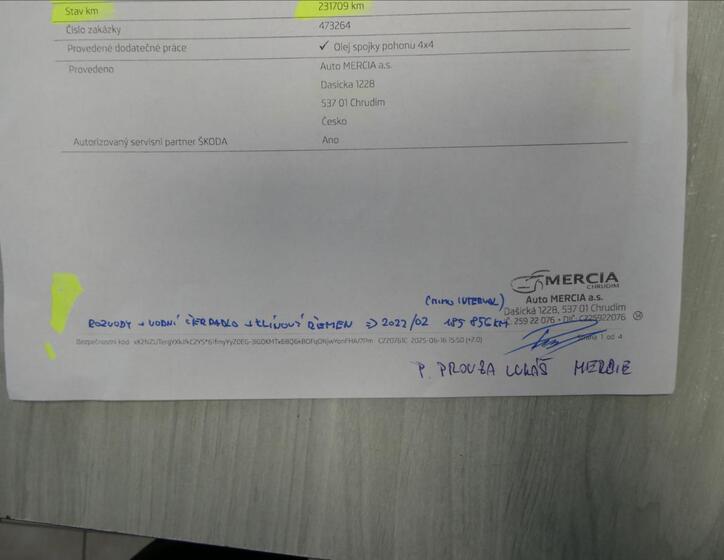 Stav km 231709 km
Číslo zakázky 473264
Provedené dodatečné práce ✓ Olej spojky pohonu 4x4
Provedeno Auto MERCIA a.s.
Dasicka 1228
537 01 Chrudim
Česko
Autorizovaný servisní partner ŠKODA Ano
MERCIA
CHRUDIM
Auto MERCIA a.s.
Dašická 1228, 537 01 Chrudim
259 22 076 • DIČ: CZ25922076
(MIMO INTERVAL)
ROZVODY + VODNÍ ČERPADLO + KLÍNOVÝ ŘEMEN => 2022/02 185 856 KM
Bezpečnostní kód CZ20761C 2025-06-16 15:50 (+7.0) 1 od 4
P. PROUZA LUKÁŠ MERCIE